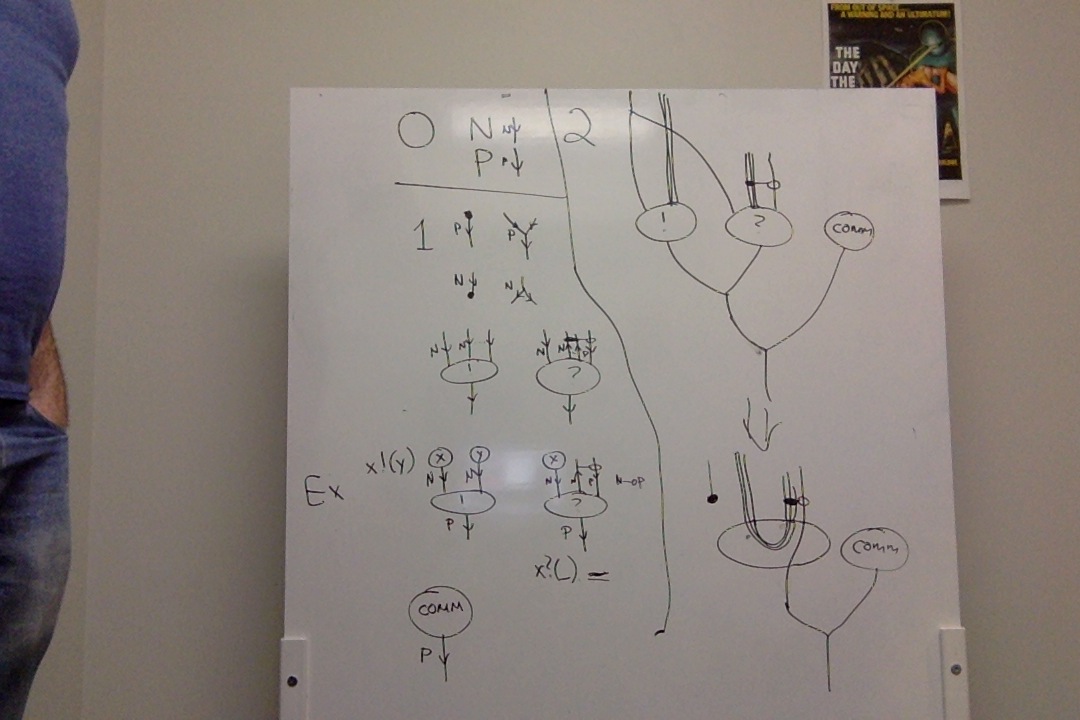 FROM OUT OF SPACE....
A WARNING AND AN ULTIMATUM!
THE
DAY
THE
0 N N
P P
2
1 P P
N N
N N
!
N N P
?
! ? COMM
Ex x!(y) x N y N
!
P
x N N P N⊸P
?
P
x?(_) =
COMM
P
COMM